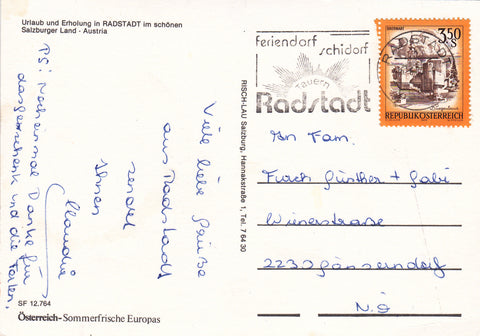 Urlaub und Erholung in RADSTADT im schönen
Salzburger Land - Austria
feriendorf
schidorf
Tauern
Radstadt
RADSTADT
3.50
S
REPUBLIK ÖSTERREICH
Viele liebe Grüße
aus Radstadt
sendet
Ihnen
Claudia
PS: Noch einmal Danke für
das Geschenk und die Karten.
RISCH-LAU Salzburg, Hannakstraße 1, Tel. 7 64 30
An Fam.
Günther + Gabi
Wienerstraße
2230 Gänserndorf
N.Ö
SF 12.764
Österreich-Sommerfrische Europas